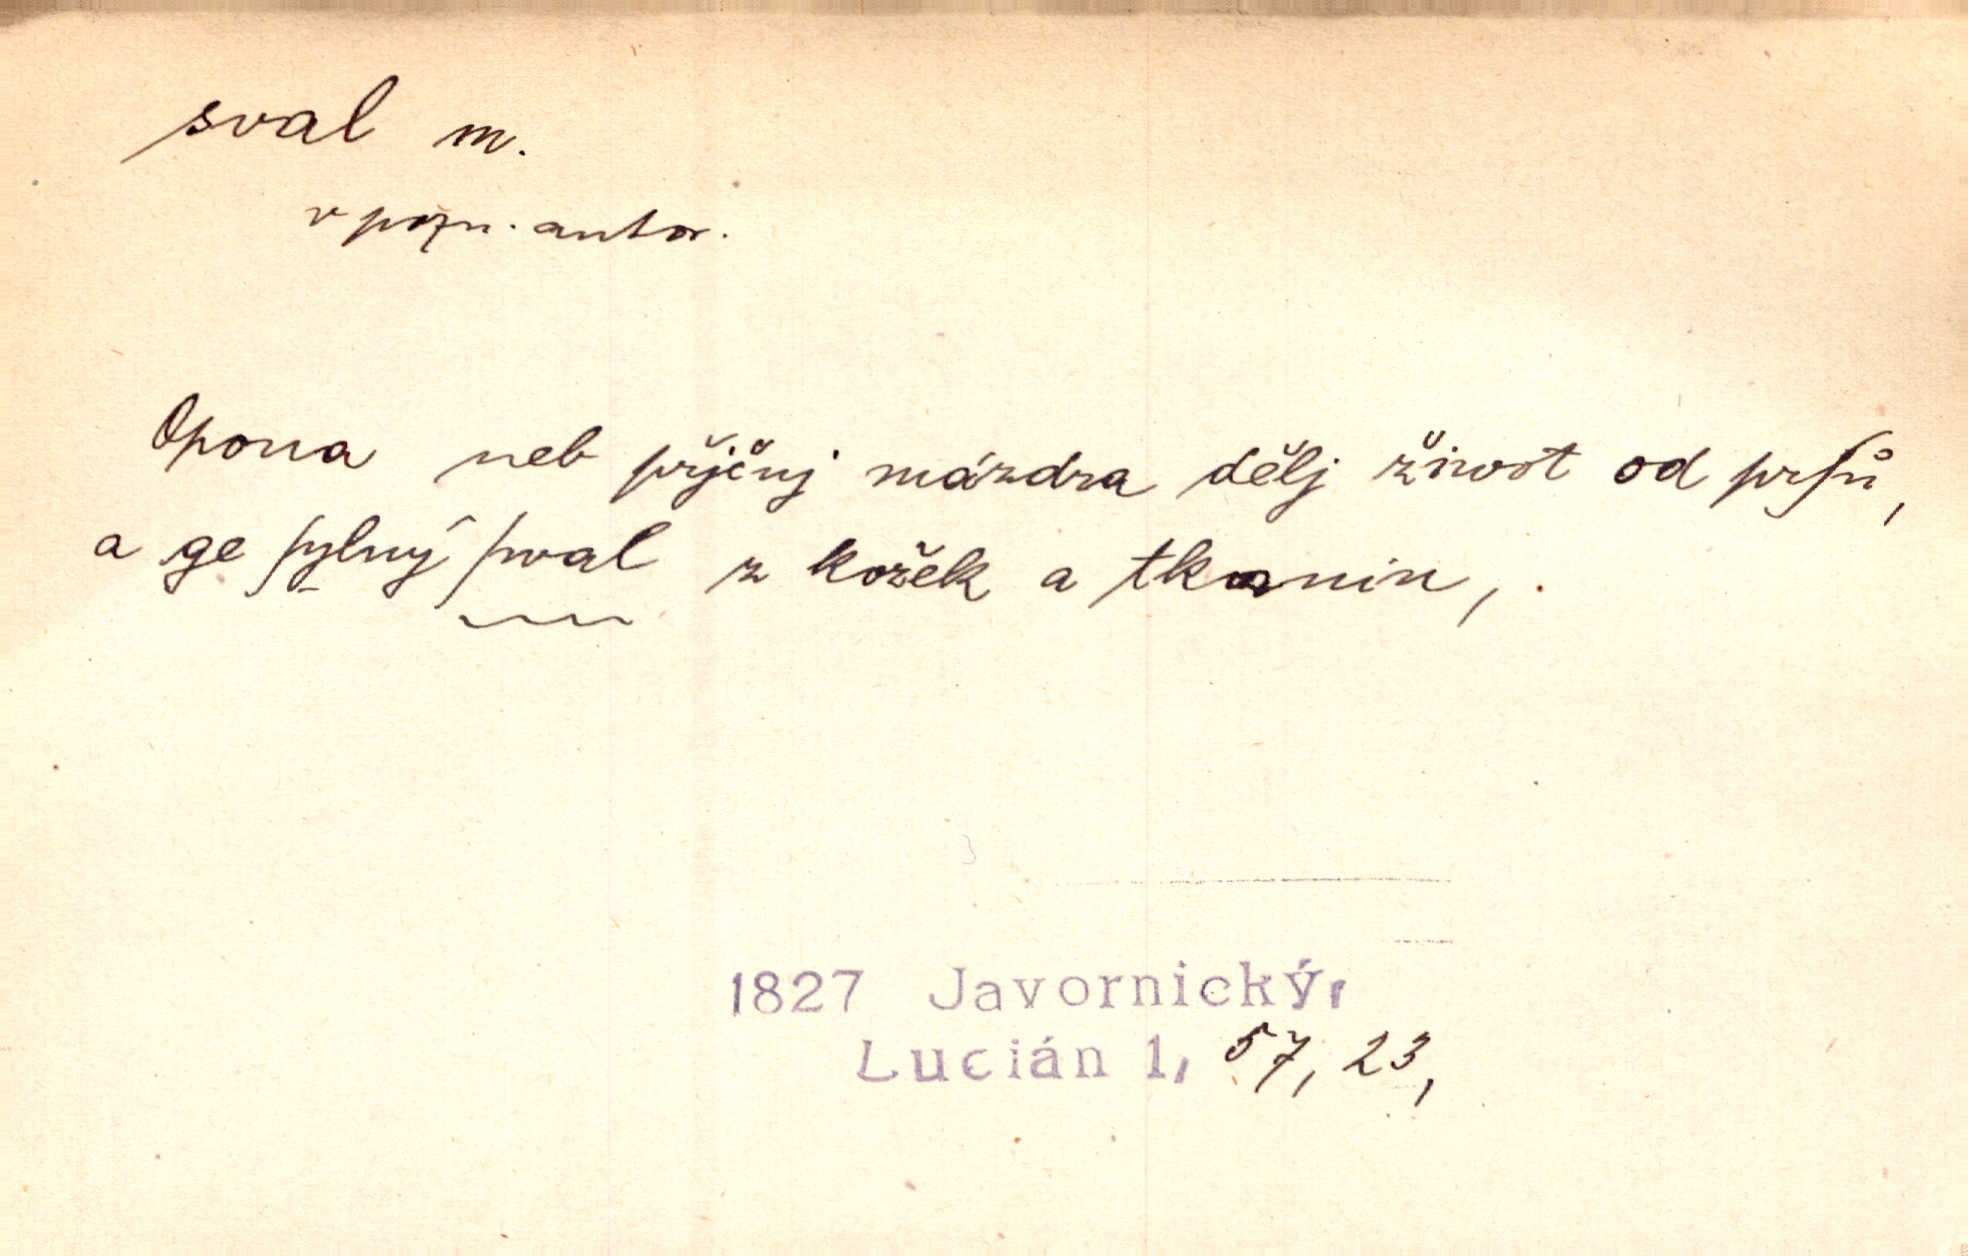 sval m.
v pozn. autor.
Opona neb přjčnj mázdra dělj žiwot od prſů,
a ge ſylný ſwal z kožek a tkanin,
1827 Javornický,
Lucián 1, 57, 23,